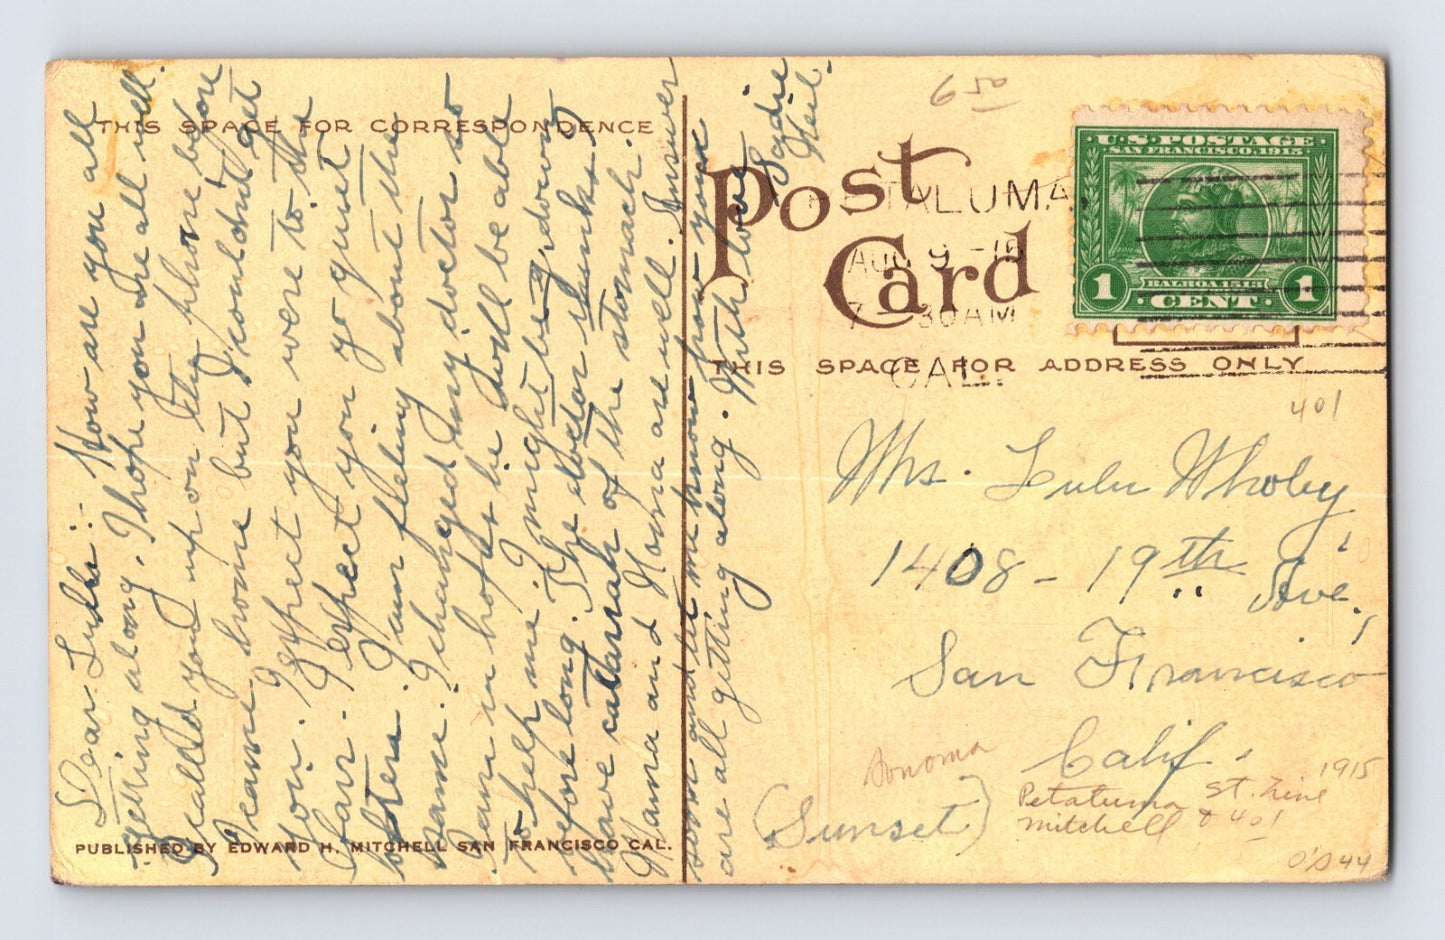 THIS SPACE FOR CORRESPONDENCE
Dear Lulu:- How are you all
getting along. I hope you are all well.
I called you up on the phone before
I came home but I couldn't get
you. I expect you were to the
Fair. I expect you go quiet
often. I am feeling about the
same. I changed my doctor so
I am in hopes he will be able
to help me. I might be down
before long. The doctor thinks I
have cattarrah of the stomach.
Mama and Norma are well. Answer
soon and let me know how you
are all getting along. With love
Sadie
Heil.
PUBLISHED BY EDWARD H. MITCHELL SAN FRANCISCO CAL.
6 50
Post
Card
PETALUMA
AUG 9
7 30 AM
CAL.
U.S. POSTAGE
SAN FRANCISCO, 1915
BALBOA 1513
1 CENT 1
THIS SPACE FOR ADDRESS ONLY
401
Mrs. Lulu Wholey
1408 - 19th Ave.,
San Francisco
Calif.
(Sunset)
Sonoma
1915
Petatuma St. Line
Mitchell & 401
O'D44